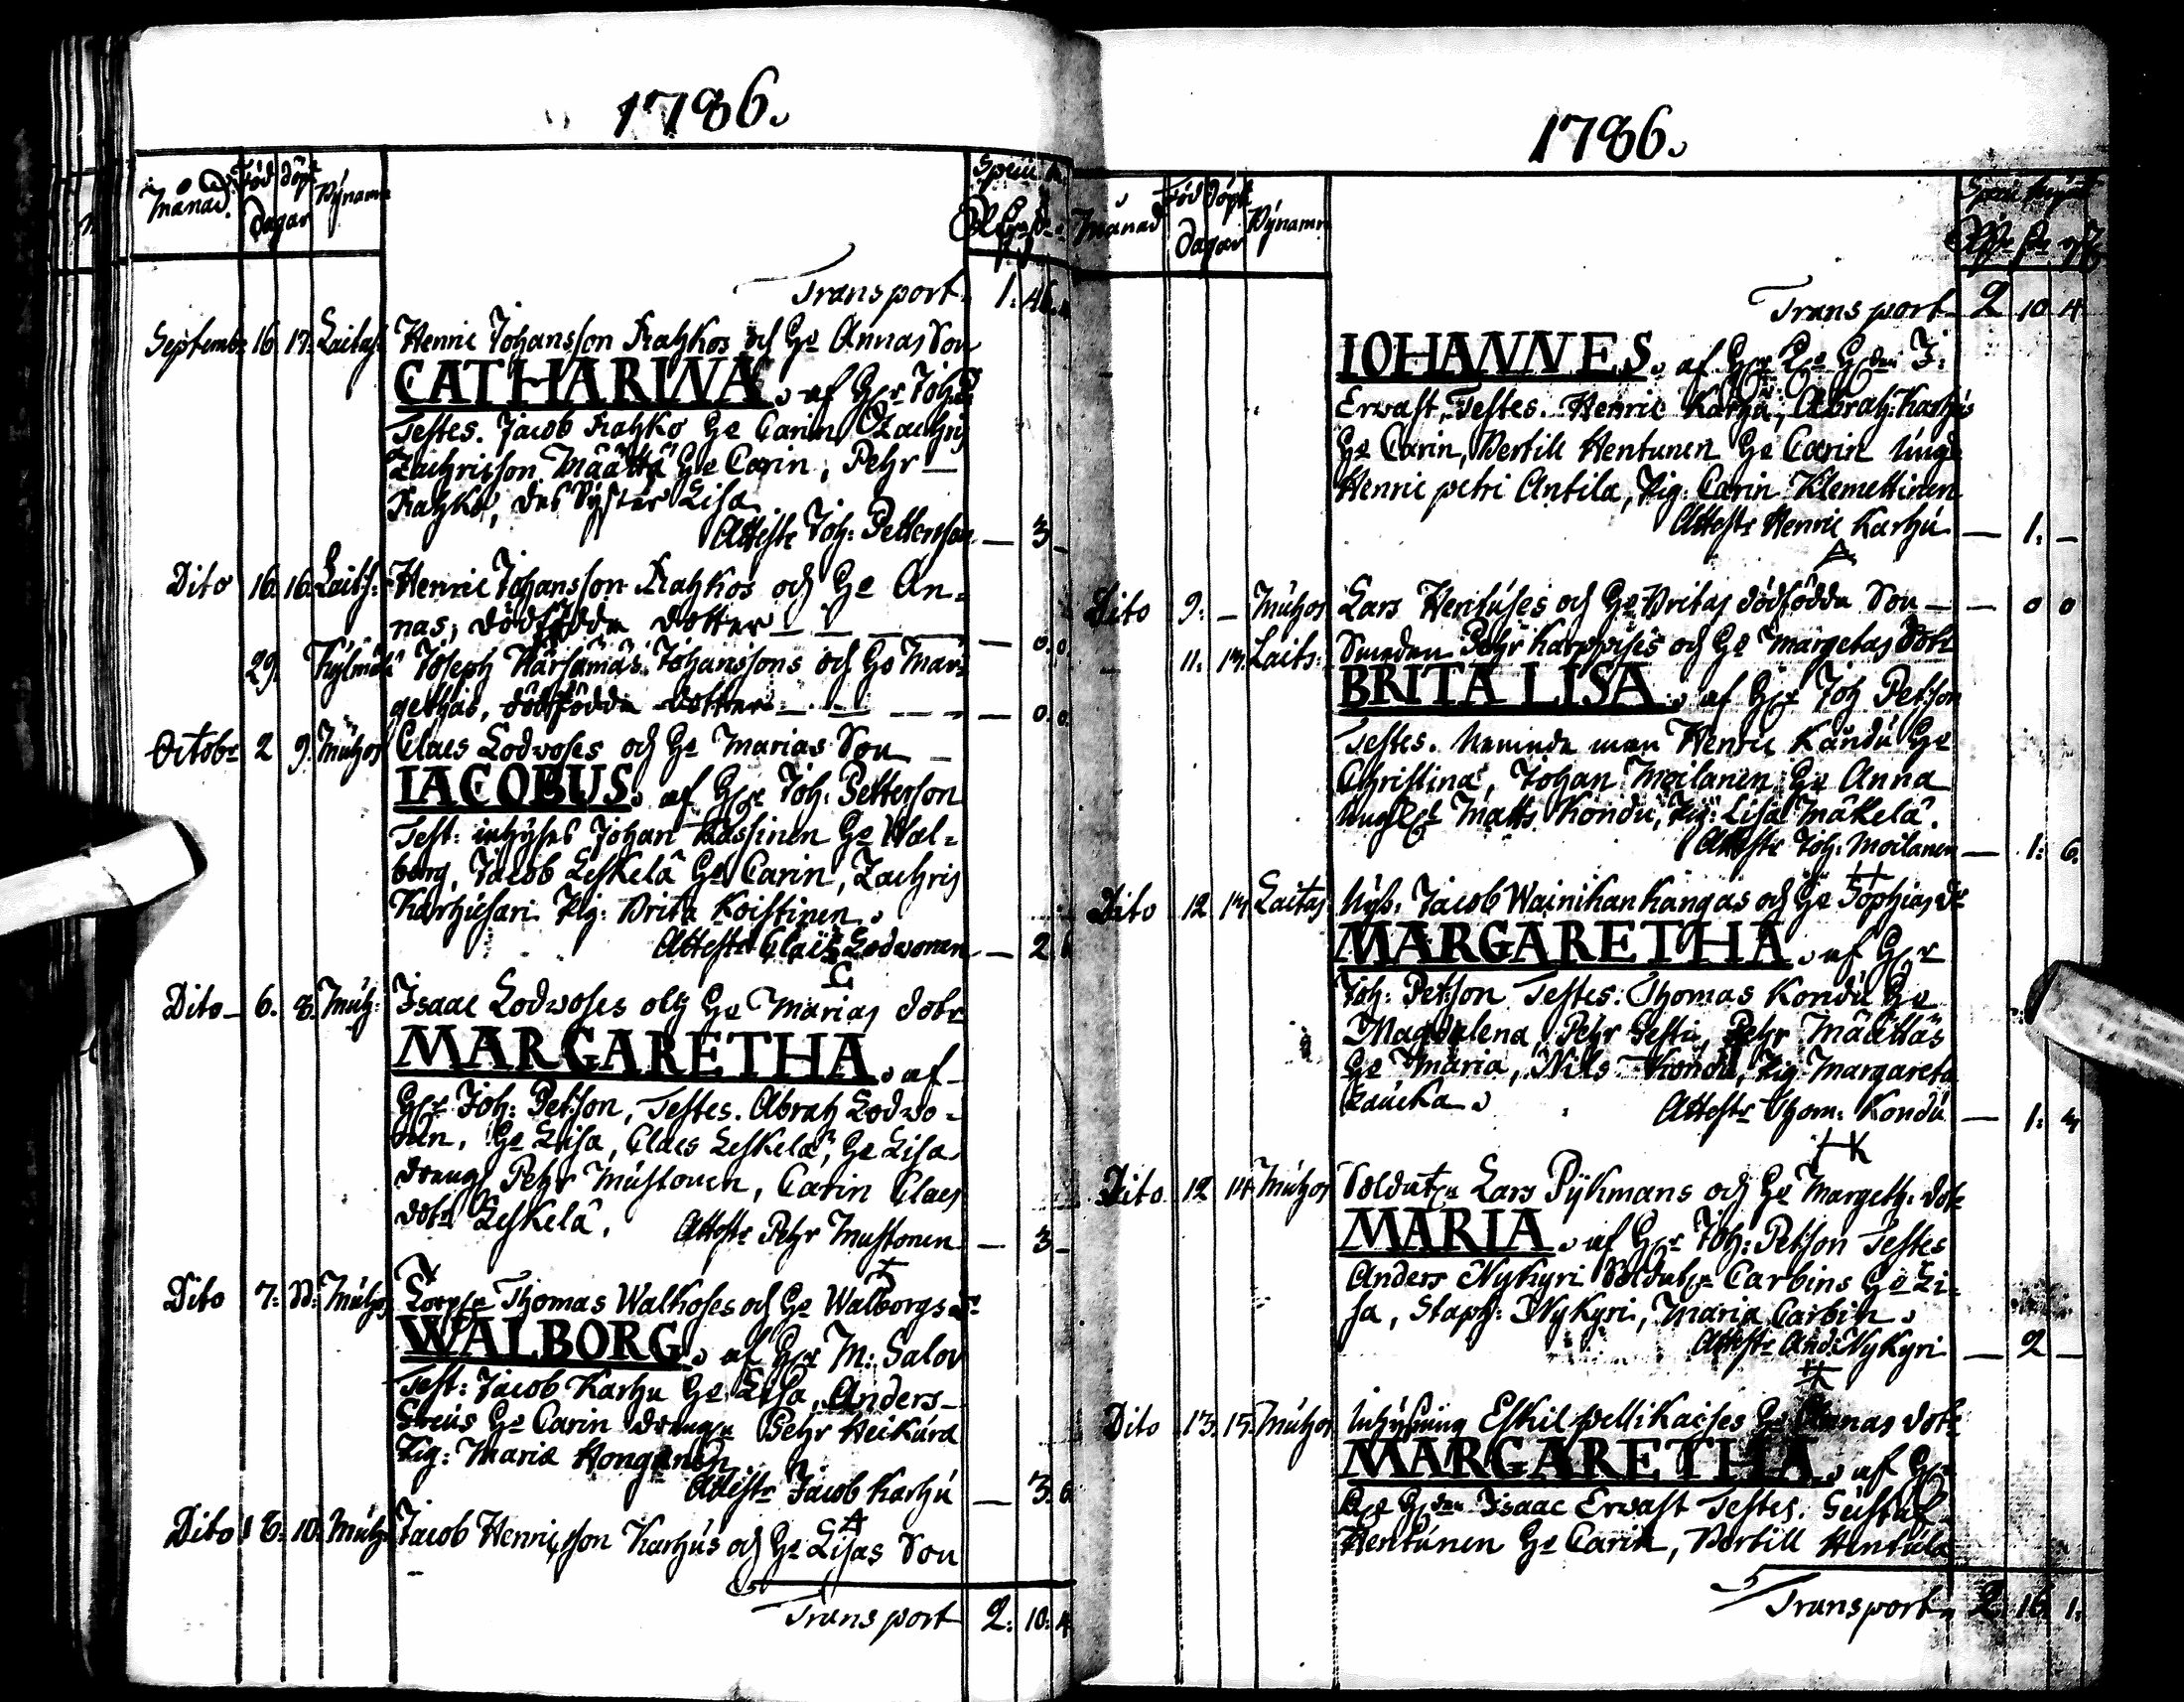 1786.
Månad. Född döpt Bynamn
Dagar
Transport 1: 46.
Septembr 16 17. Laitas. Henric Johansson Rahkos och Hs Annas Son
CATHARINA. af Hr Joh:
Testes. Jacob Rahko Hs Carin, Zachris
Zachrisson Määttä Hs Carin, Pehr
Rahko, des Syster Lisa
Attestr Joh: Pettersson — 3 —
Dito 16. 16. Laits: Henric Johansson Rahkos och Hs An-
nas, dödfödda dotter — — — 0. 0.
29. Kylmälä Joseph Härkämäs Johanssons och Hs Mar-
gethas, dödfödda dotter — — — 0. 0.
Octobr 2 9. Muhos Claes Lodwoses och Hs Marias Son —
IACOBUS. af Hr Joh: Petterson
Test: inhyses Johan Kassinen Hs Wal-
borg, Jacob Leskelä Hs Carin, Zachris
Karhusari Pig: Brita Koistinen.
Attestr Claes Lodwonen — 2. 6
Dito 6. 8. Muh: Isaac Lodwoses och Hs Marias dotr
MARGARETHA. af
Hr Joh: Petson, Testes. Abrah Lodwo-
nen, Hs Lisa, Claes Leskelä, Hs Lisa
dreng Pehr Mustonen, Carin Claes
dotr Leskelä. Attestr Pehr Mustonen — 3 —
Dito 7: Muhos Thomas Walkoses och Hs Walborgs dr
WALBORG. af Hr M: Salov
Test: Jacob Karhu Hs Lisa, Anders
Hs Carin drengn Pehr Heikura
Pig: Maria Honganen
Attestr Jacob Karhu — 3. 6
Dito 8. 10. Muh: Jacob Henricsson Karhus och Hs Lisas Son
Transport 2: 10. 4
1786.
Månad Född döpt Bynamn
Dagar
Transport 2 10 4
IOHANNES. af Hr J:
Erwast, Testes. Henric Karhu, Abrah: Karhus
Hs Carin, Bertill Hentunen Hs Carin ung
Henric petri Antila, Pig: Carin Klemettinen
Attestr Henric Karhu — 1. —
Dito 9. — Muhos Lars Hentuses och Hs Britas dödfödda Son — — 0 0
11. 13. Laits: Smeden Pehr Karppises och Hs Margetas dotr
BRITA LISA. af Hr Joh Petson
Testes. Nemnde man Henric Kondu Hs
Christina, Johan Moilanen Hs Anna
Matts Kondu, Pig: Lisa Mäkelä.
Attestr Joh: Moilanen — 1: 6.
Dito 12 14. Laitas Nyb: Jacob Wainikankangas och Hs Sophias dr
MARGARETHA. af Hr
Joh: Petson Testes: Thomas Kondu Hs
Magdalena, Pehr Pehr Määttäs
Hs Maria, Nils Kondu, Pig Margareta
Laucka. Attestr Thom: Kondu — 1: 4
Dito 12 14. Muhos Soldatn Lars Pykmans och Hs Margeth: dotr
MARIA. af Hr Joh: Petson Testes
Anders Nykyri Soldatn Carbins Hs Li-
sa, Staph: Nykyri, Maria Carbin.
Attestr And: Nykyri — 2 —
Dito 13. 15. Muhos Inhysing Eskil Pellikaises Hs Annas dotr
MARGARETHA. af Hr
Isaac Erwast Testes. Gustaf
Hentunen Hs Carin, Bertill Hentula
Transport 2. 16. 1.